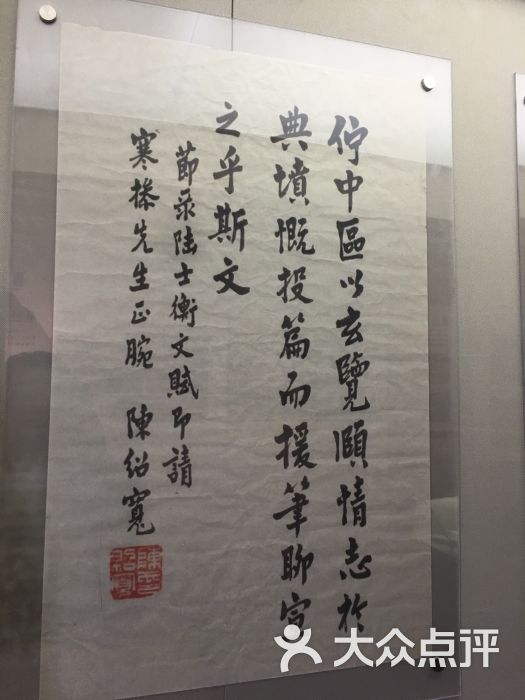 佇中區以玄覽頤情志於
典墳慨投篇而援筆聊宣
之乎斯文
節录陆士衡文賦即請
寒操先生正腕 陳紹寬
大众点评